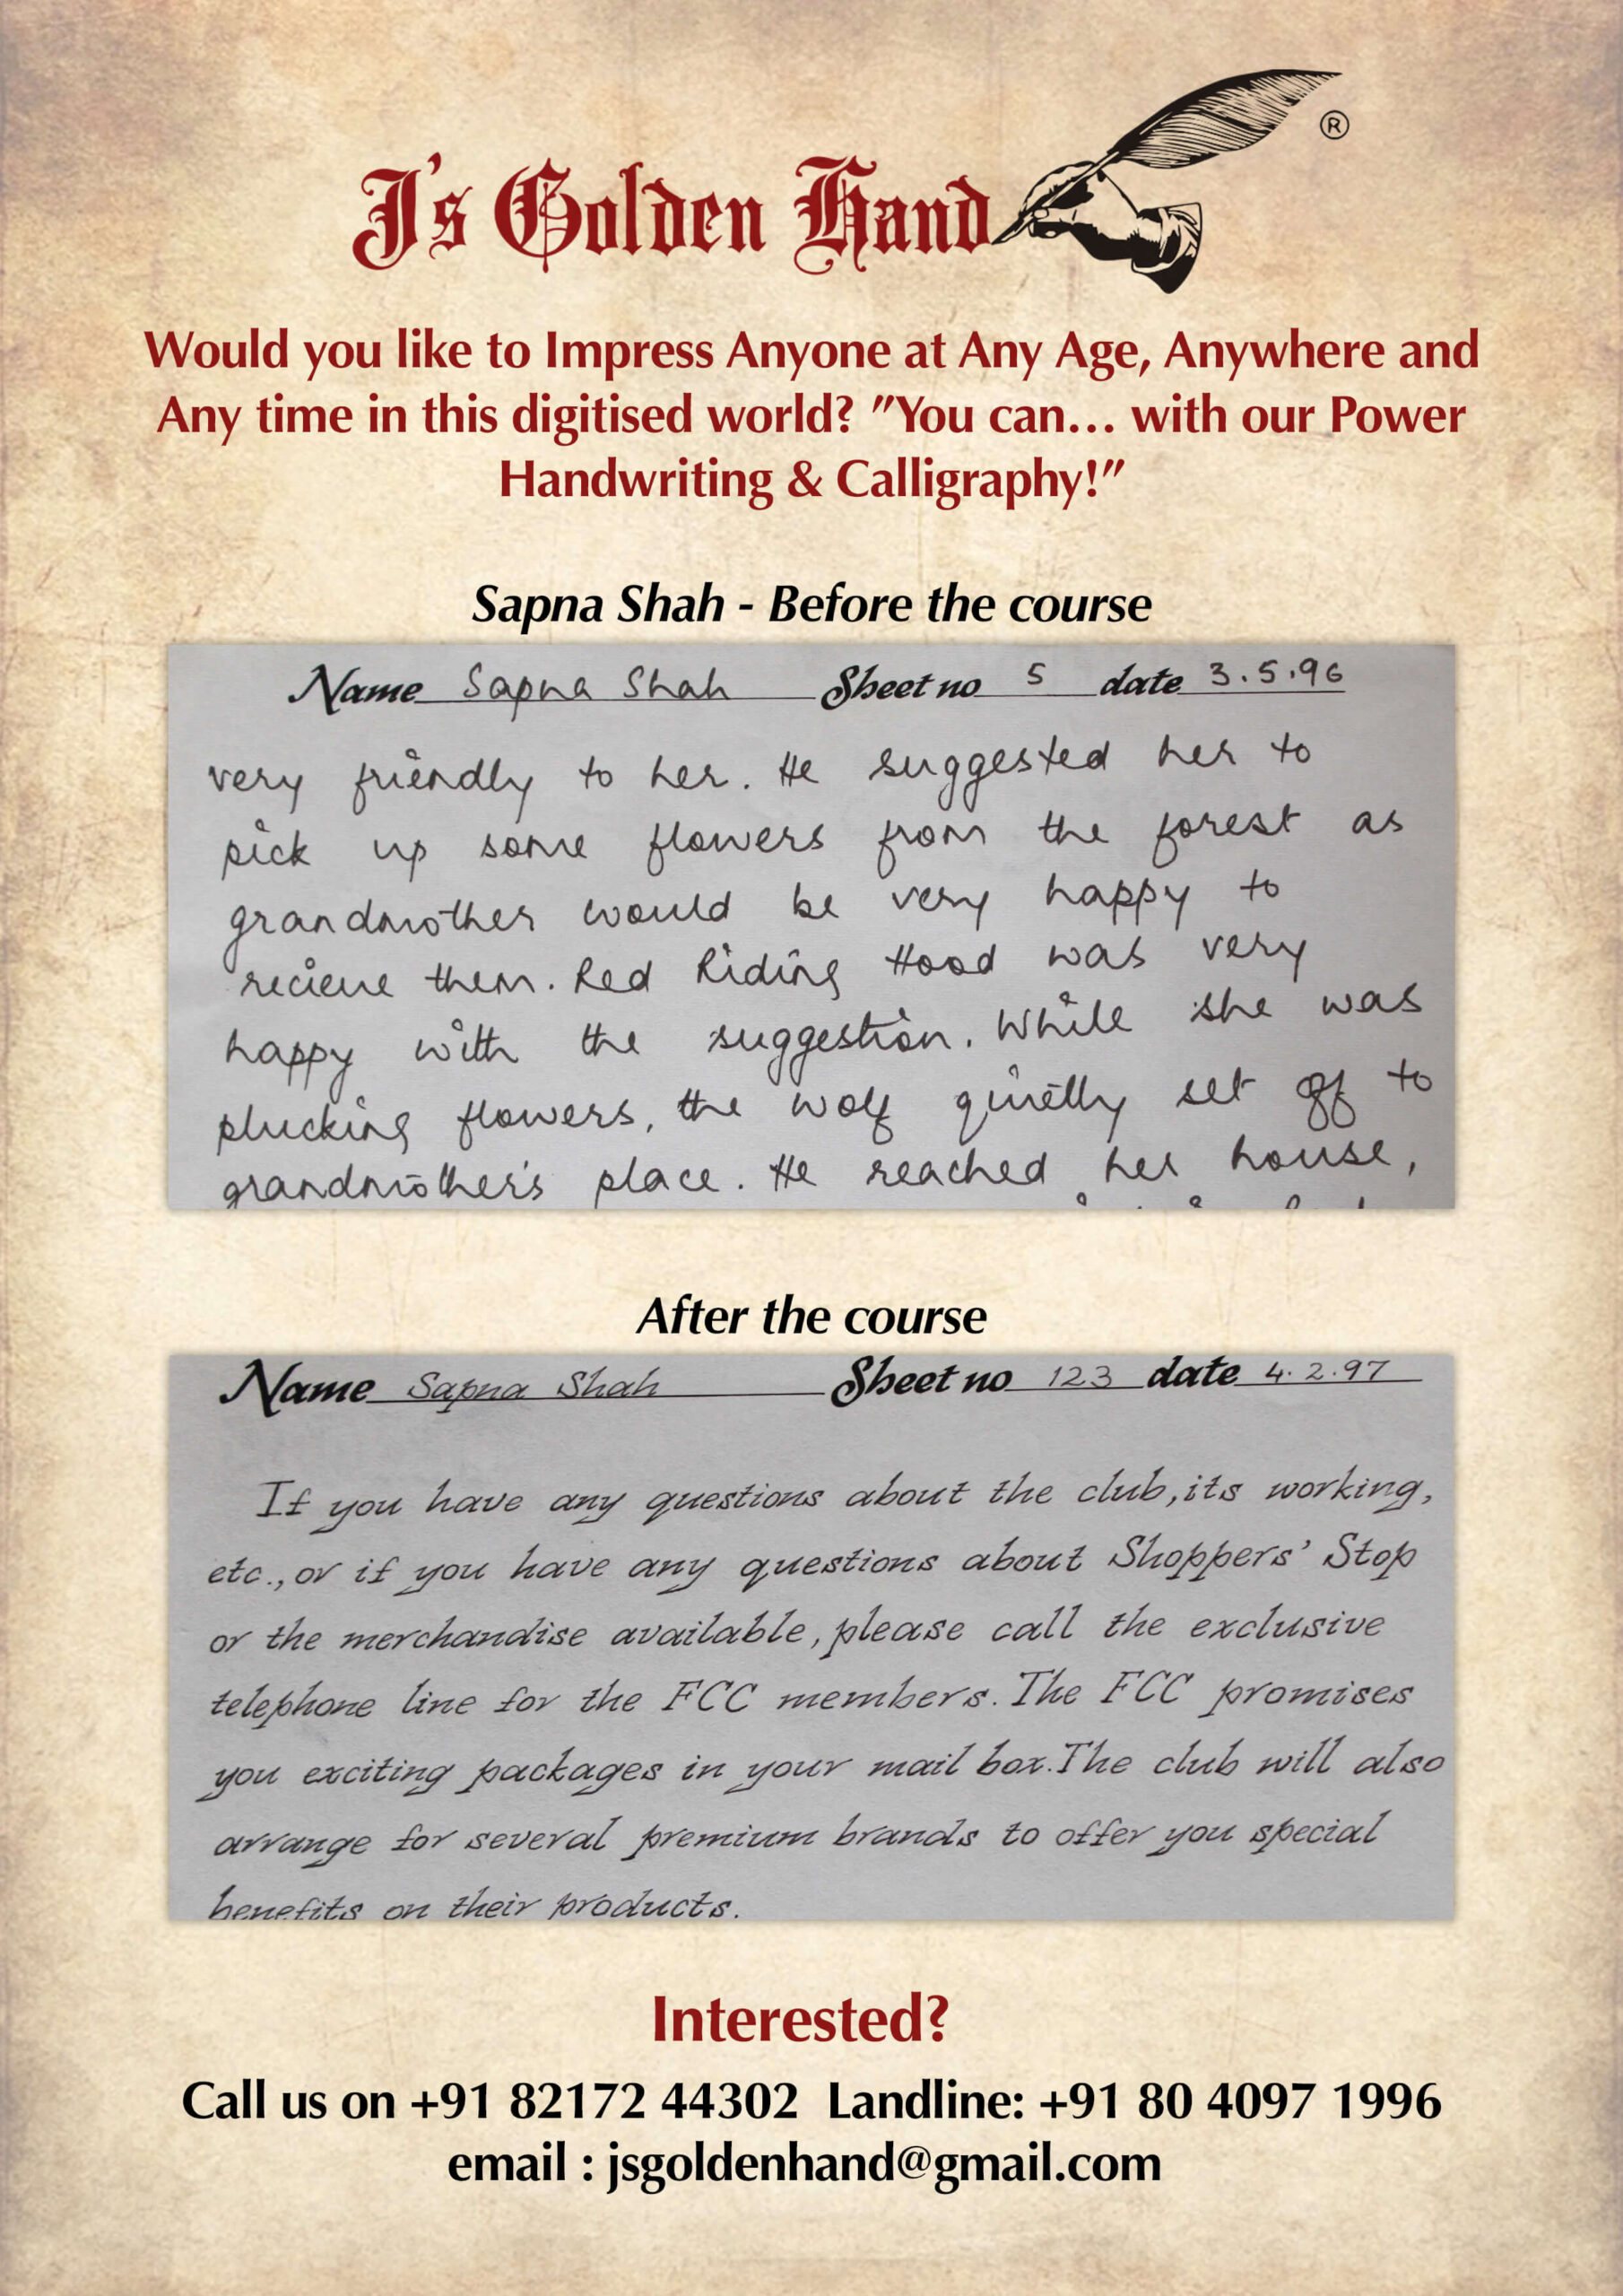 J's Golden Hand ®
Would you like to Impress Anyone at Any Age, Anywhere and
Any time in this digitised world? "You can... with our Power
Handwriting & Calligraphy!"
Sapna Shah - Before the course
Name Sapna Shah Sheet no 5 date 3.5.96
very friendly to her. He suggested her to
pick up some flowers from the forest as
grandmother would be very happy to
recieve them. Red Riding Hood was very
happy with the suggestion. While she was
plucking flowers, the wolf quietly set off to
grandmother's place. He reached her house,
After the course
Name Sapna Shah Sheet no 123 date 4.2.97
If you have any questions about the club, its working,
etc., or if you have any questions about Shoppers' Stop
or the merchandise available, please call the exclusive
telephone line for the FCC members. The FCC promises
you exciting packages in your mail box. The club will also
arrange for several premium brands to offer you special
benefits on their products.
Interested?
Call us on +91 82172 44302 Landline: +91 80 4097 1996
email : jsgoldenhand@gmail.com